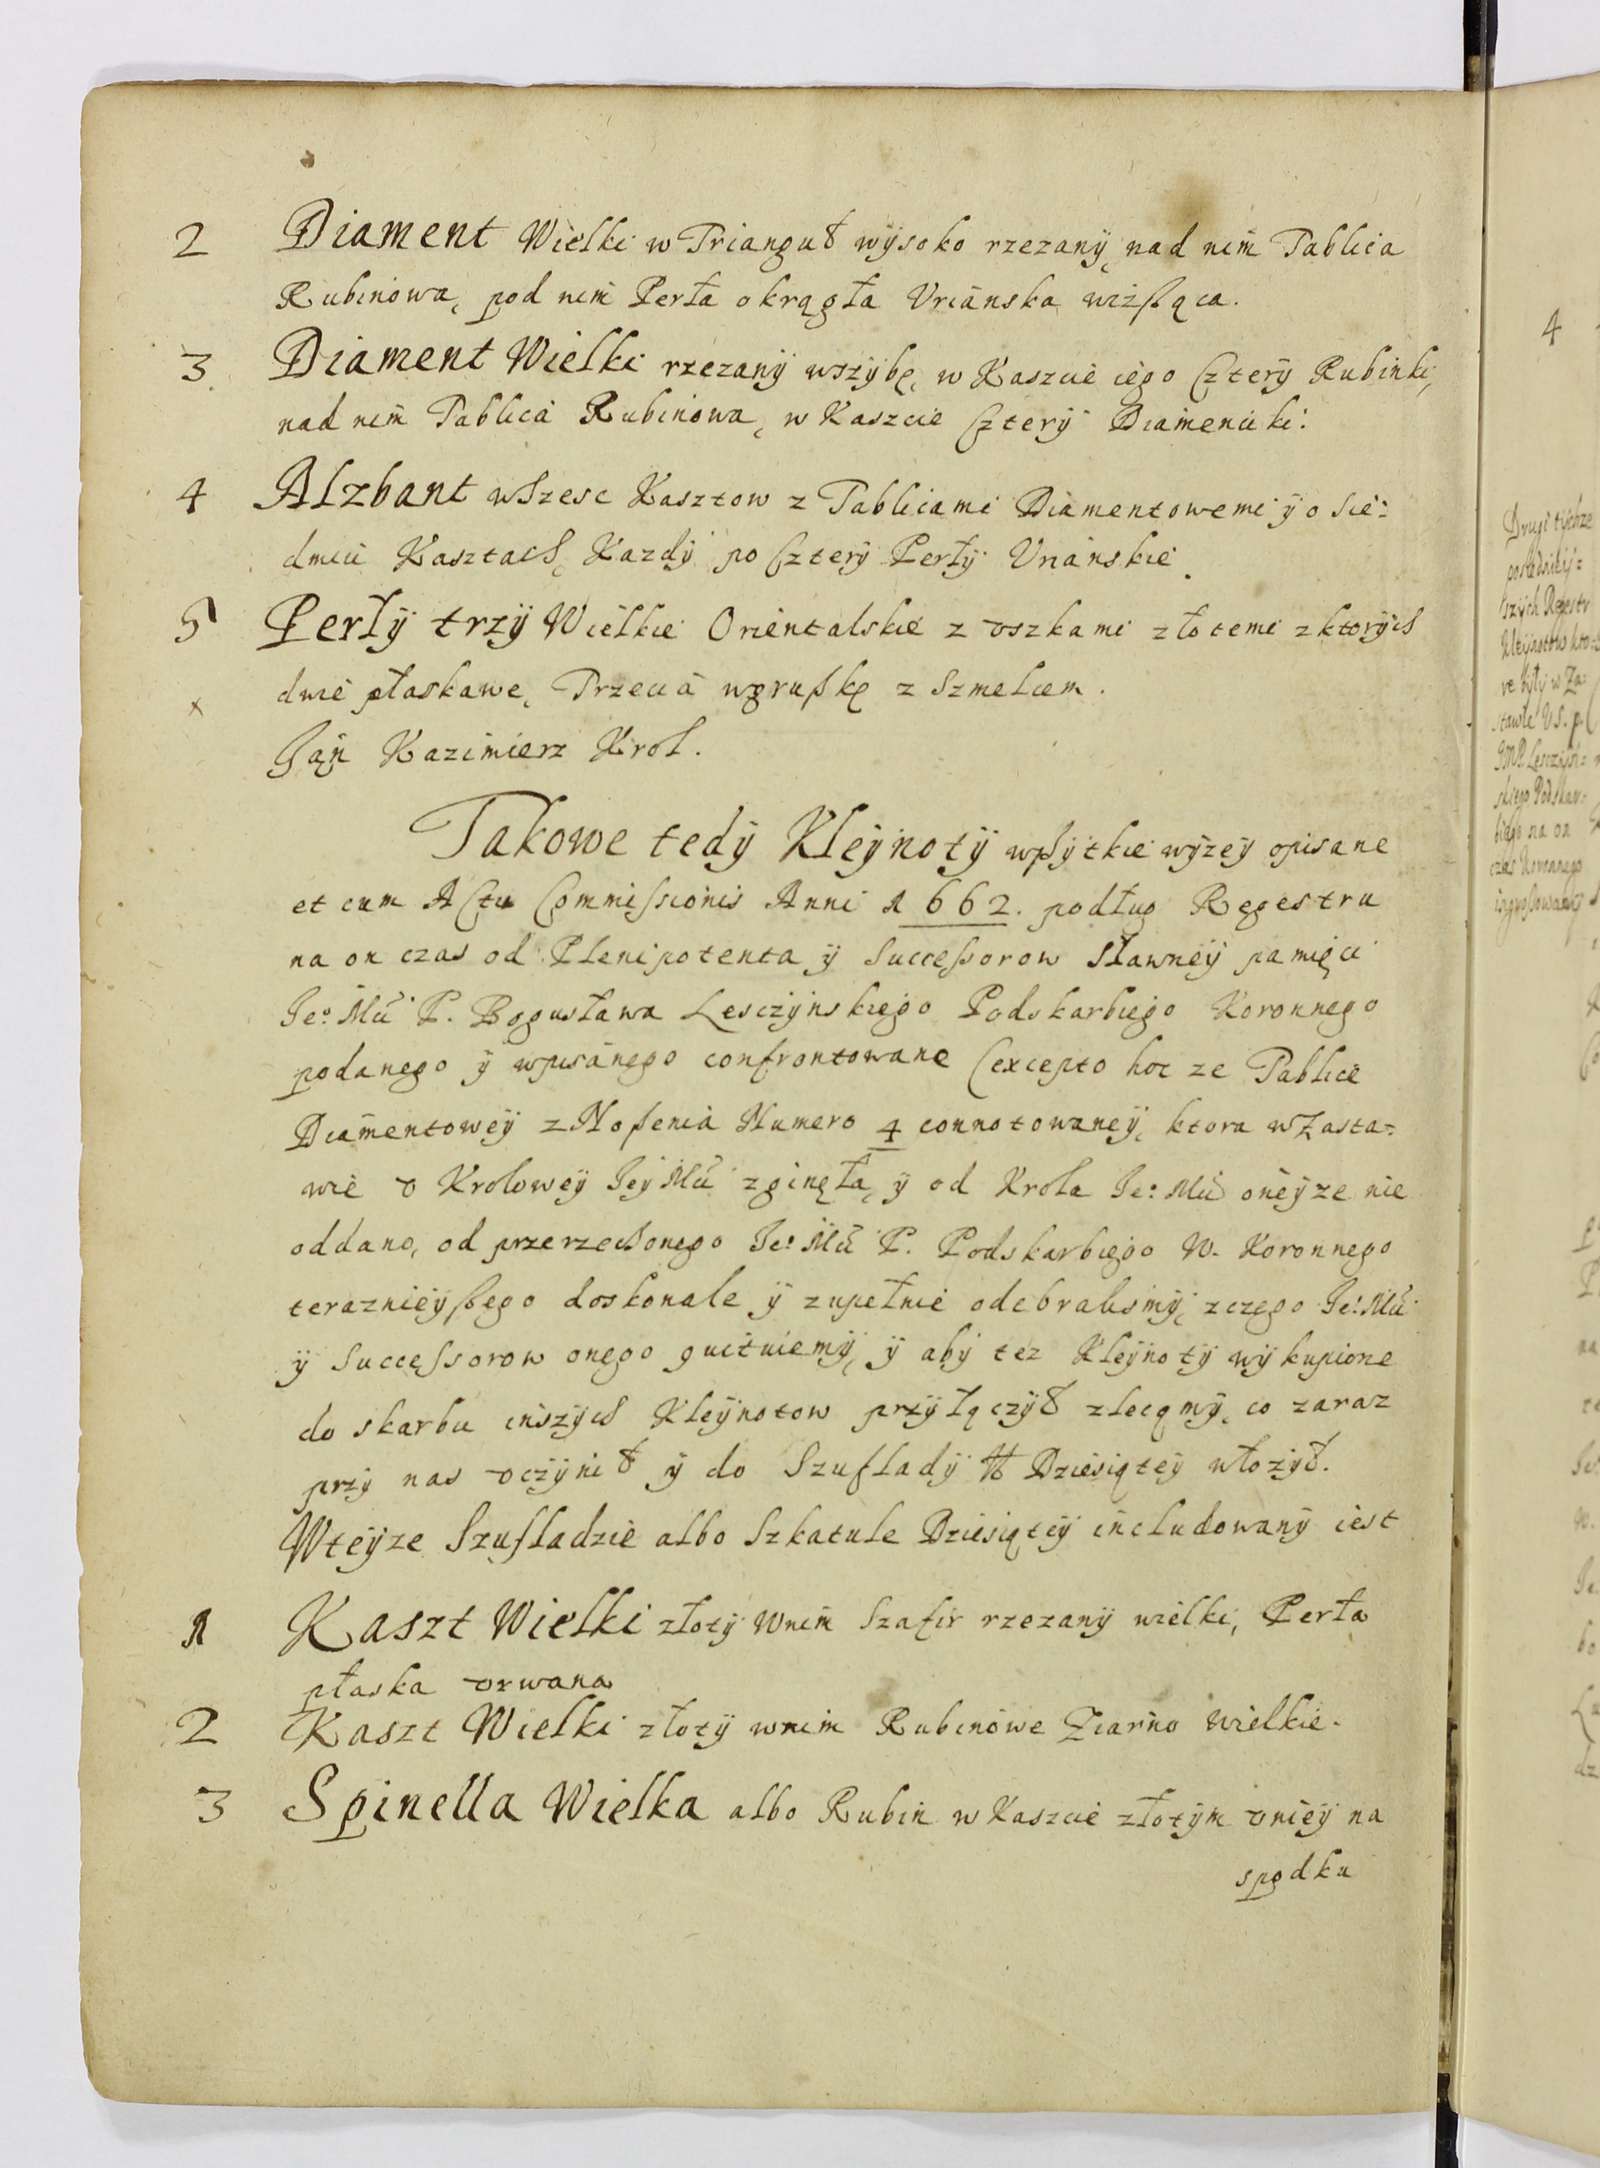 2 Diament Wielki w Trianguł wysoko rzezany, nad nim Tablica
Rubinowa, pod nim Perła okrągła Vrianska wisząca.
3 Diament Wielki rzezany wszybę, w Kaszcie iego Cztery Rubinki,
nad nim Tablica Rubinowa, w Kaszcie Cztery Diamenciki.
4 Alzbant wSzesc Kasztow z Tablicami Diamentowemi y o Sie-
dmiu Kasztach, Kazdy po Cztery Perły Vrianskie.
5 Perły trzy Wielkie Orientalskie z vszkami złotemi z ktorych
x dwie płaskawe, Trzecia wgruszkę z Szmelcem.
Jan Kazimierz Krol.
Takowe tedy Kleynoty wszytkie wyzey opisane
et cum Actu Commissionis Anni 1662. podług Regestru
na on czas od Plenipotenta y Successorow Sławney pamięci
Je⁰ Mci P. Bogusława Lesczynskiego Podskarbiego Koronnego
podanego y wpisanego confrontowane (excepto hoc ze Tablice
Diamentowey z Noszenia Numero 4 connotowaney, ktora w Zasta-
wie v Krolowey Jey Mci zginęła, y od Krola Je⁰ Mci oneyze nie
oddano, od przerzeczonego Je⁰ Mci P. Podskarbiego W. Koronnego
teraznieyszego doskonale y zupełnie odebralismy, z czego Je⁰ Mci
y Successorow onego quituiemy, y aby tez Kleynoty wykupione
do skarbu inszych Kleynotow przyłączył zlecamy, co zaraz
przy nas vczynił y do Szuflady Dziesiątey włozył.
Wteyze Szufladzie albo Szkatule Dziesiątey includowany iest
1 Kaszt Wielki złoty wnim Szafir rzezany wielki, Perła
płaska vrwana
2 Kaszt Wielki złoty wnim Rubinowe Ziarno wielkie.
3 Spinella Wielka albo Rubin w Kaszcie złotym vniey na
spodku
4
Drugi tychze
szych Regestr
Kleynotow kto-
re były w Za-
stawie V S. p.
JMP. Lesczyn-
skiego Podskar-
biego na on
czas Koronnego